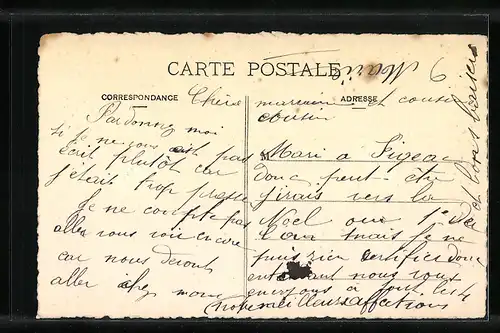 CARTE POSTALE
CORRESPONDANCE
ADRESSE
Chère
Pardonnez moi
si je ne vous ai pas
écrit plutôt car
j'étais trop pressé
Je ne compte pas
aller vous voir encore
car nous devons
aller chez
marraine et cousin
cousine
Mari a Figeac
donc peut être
j'irais vers la
Noel ou 1er de
l'an mais je ne
puis rien certifier donc
entendant nous vous
envoyons à tout
nos meilleurs affections
et bons baisers